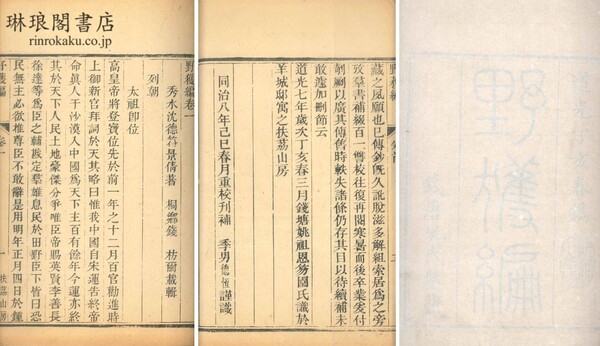 琳琅閣書店
rinrokaku.co.jp
野獲編卷一
秀水沈德符景倩著 桐鄉錢 枋爾載輯
列朝
太祖即位
高皇帝將登寶位先於前一年之十二月百官勸進時
上御新宮拜詞於天其略曰惟我中國自宋運告終帝
命眞人于沙漠入中國爲天下主百有餘年今運亦終
其於天下人民土地豪傑分爭惟帝賜英賢李善長
徐達等爲臣之輔戡定羣雄息民於田野臣下皆曰恐
民無主必欲推尊臣不敢辭是用明年正月四日於鍾
野獲編 卷一 一 扶荔山房
藏之夙願也已傳鈔旣久訛脫滋多解組索居爲之旁
攷羣書補綴百一讐校往復再閱寒暑而後卒業爰付
剞劂以廣其傳舊時軼失諸條仍存其目以待續補未
敢遽加刪節云
道光七年歲次丁亥春三月錢塘姚祖恩笏園氏識於
羊城邸寓之扶荔山房
同治八年己巳春月重校刊補 季男德恆謹識
野獲編